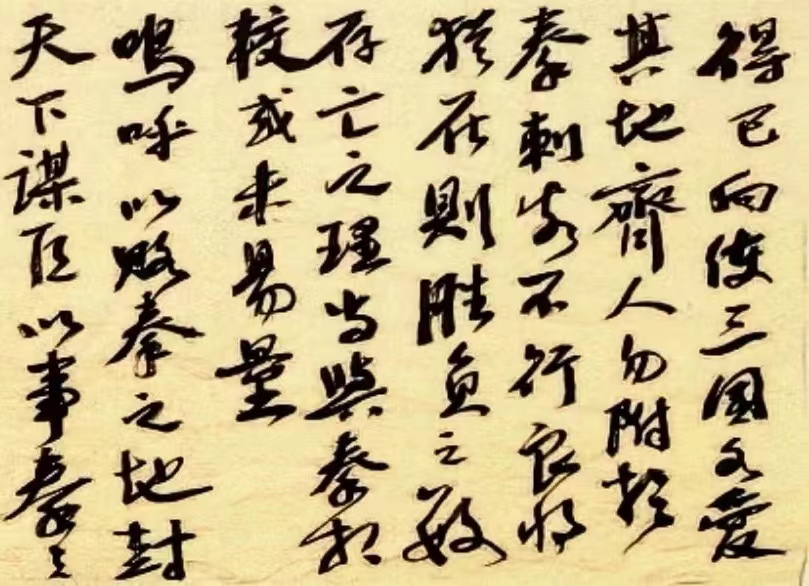 得已向使三國各愛
其地齊人勿附於
秦刺客不行良將
猶在則勝負之數
存亡之理当與秦相
較或未易量
嗚呼以賂秦之地封
天下謀臣以事秦之